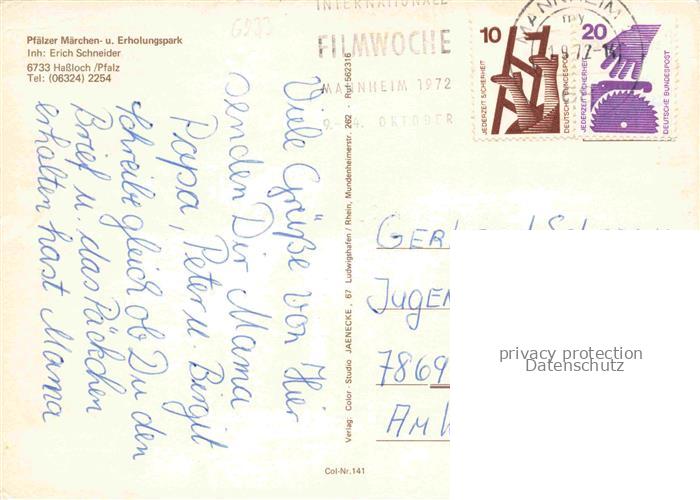 Pfälzer Märchen- u. Erholungspark
Inh: Erich Schneider
6733 Haßloch /Pfalz
Tel: (06324) 2254
6733
INTERNATIONALE
FILMWOCHE
MANNHEIM 1972
9.-14. OKTOBER
MANNHEIM
10
JEDERZEIT SICHERHEIT
DEUTSCHE BUNDESPOST
20
JEDERZEIT SICHERHEIT
DEUTSCHE BUNDESPOST
Viele Grüße von Hier
senden Dir Mama
Papa, Peter u. Birgit
Schreibe gleich ob Du den
Brief u. das Päckchen
erhalten hast Mama
Verlag: Color - Studio JAENECKE, 67 Ludwigshafen / Rhein, Mundenheimerstr. 262 · Ruf 562316
Col-Nr.141
JUGEN
7869
AM
privacy protection
Datenschutz